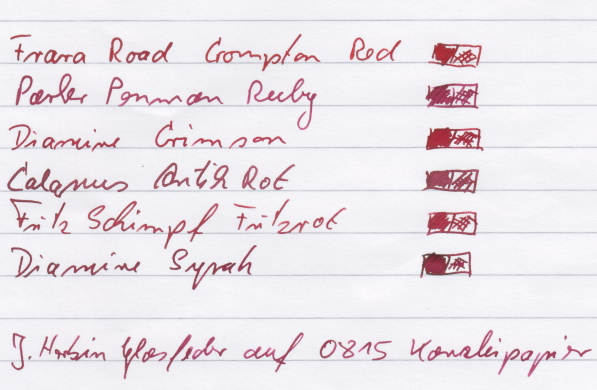 Frana Road Crompton Red
Parker Penman Ruby
Diamine Crimson
Calamus Antik Rot
Fritz Schimpf Fritzrot
Diamine Syrah
J. Herbin Glasfeder auf 0815 Kanzleipapier